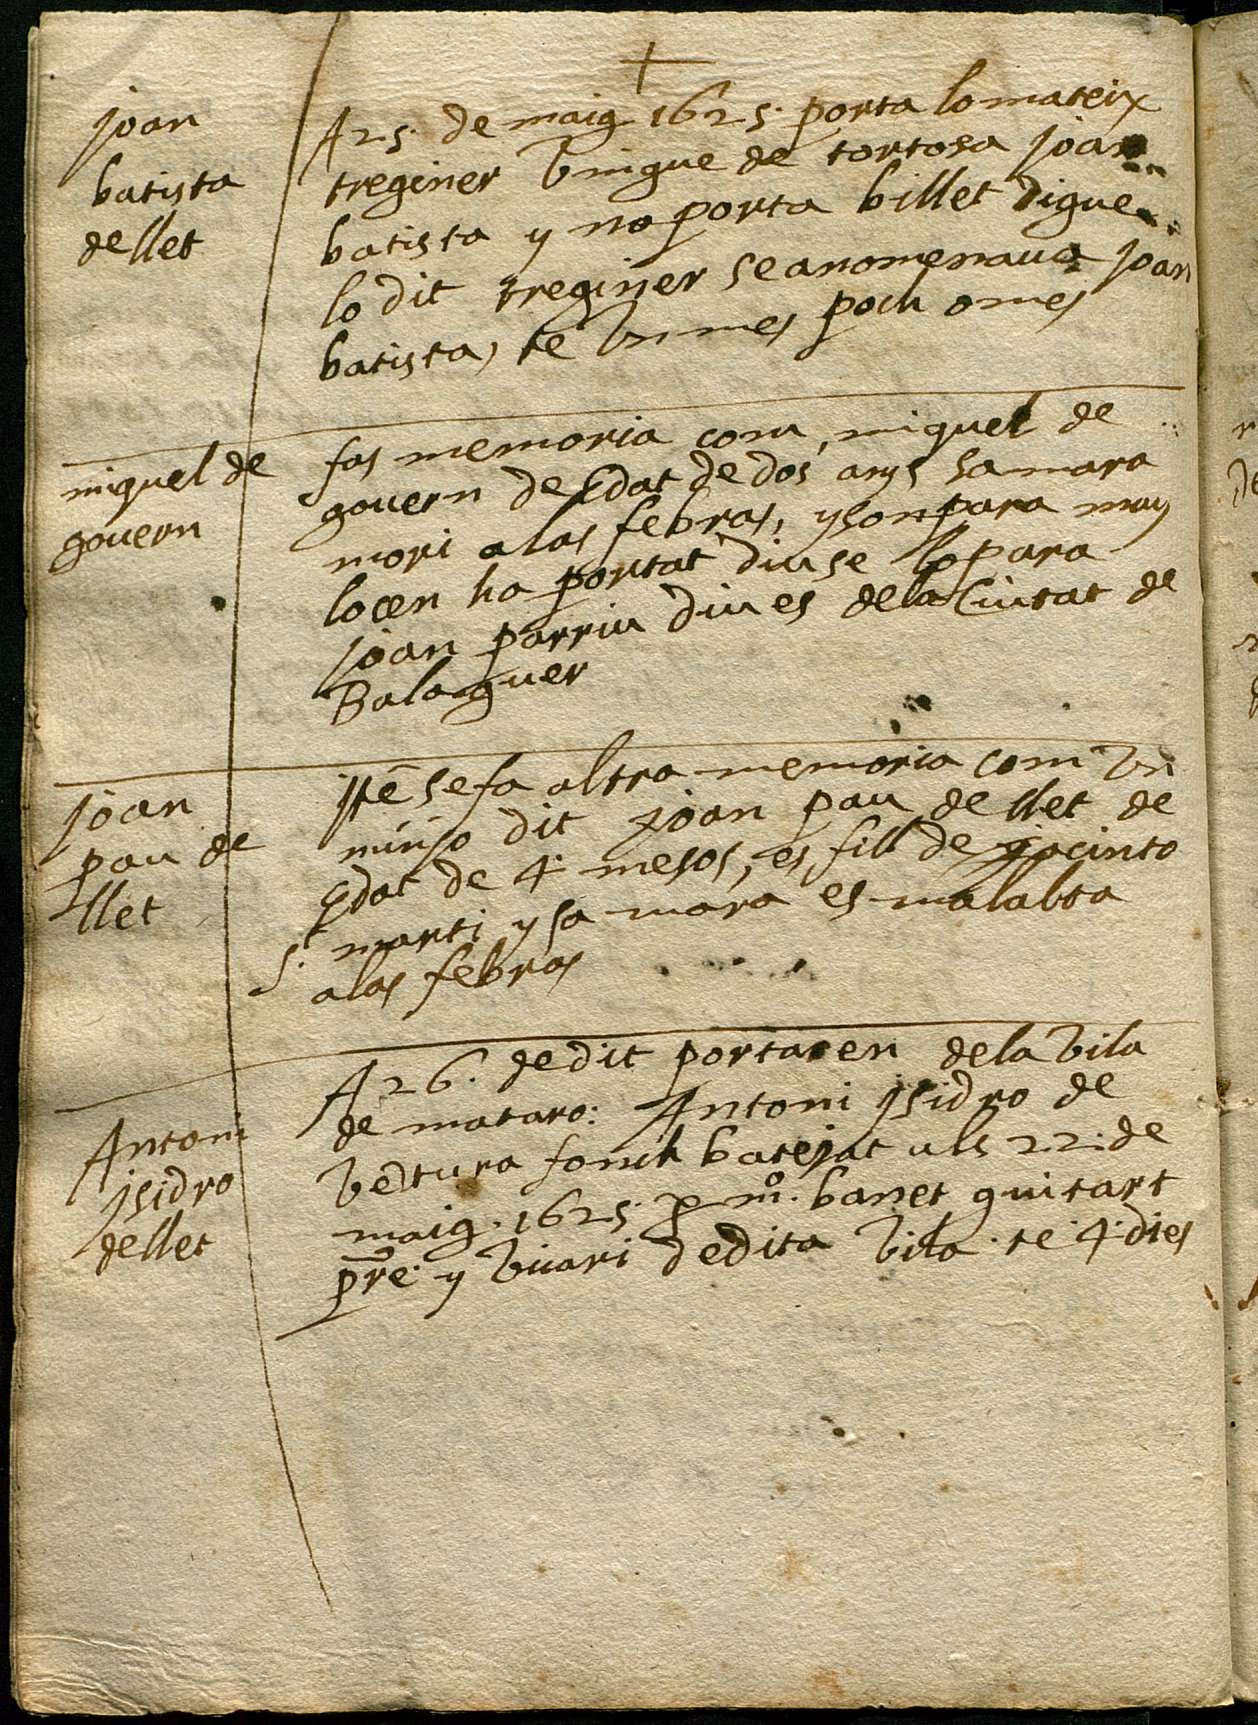 +
joan
batista
de llet
A 25. de maig 1625. porta lo mateix
treginer vingue de tortosa joan
batista y no porta billet digue
lo dit treginer se anomenava joan
batista, te un mes poch o mes
miquel de
govern
fas memoria com miquel de
govern de Edat de dos anys sa mara
mori a las febras, y son para may
lo en ha portat diu se lo para
joan parriu diu es de la Ciutat de
Balaguer
joan
pau de
llet
Ite se fa altra memoria com un
minyo dit joan pau de llet de
Edat de 4 mesos, es fill de jacinto
S. marti y sa mara es malalta
a las febras
Antoni
isidro
de llet
A 26. de dit portaren de la vila
de mataro: Antoni isidro de
ventura fonch batejat als 22. de
maig. 1625. p mº. banet guitart
pre. y vicari de dita vila. te 4 dies